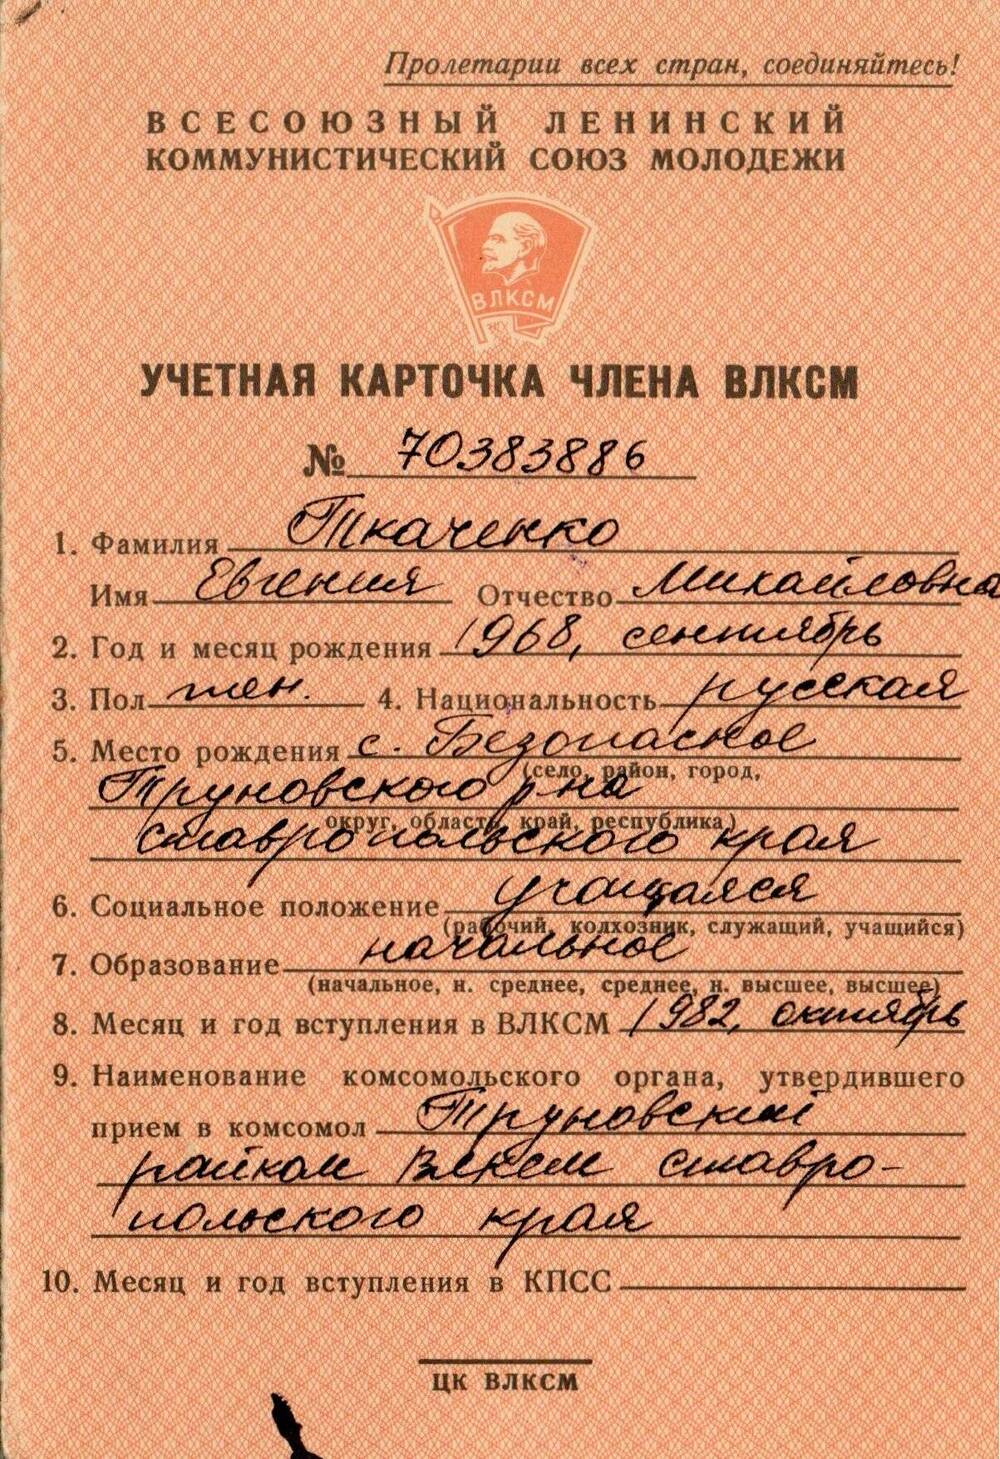 Пролетарии всех стран, соединяйтесь!
ВСЕСОЮЗНЫЙ ЛЕНИНСКИЙ
КОММУНИСТИЧЕСКИЙ СОЮЗ МОЛОДЕЖИ
ВЛКСМ
УЧЕТНАЯ КАРТОЧКА ЧЛЕНА ВЛКСМ
№ 70383886
1. Фамилия Ткаченко
Имя Евгения Отчество Михайловна
2. Год и месяц рождения 1968, сентябрь
3. Пол жен. 4. Национальность русская
5. Место рождения с. Безопасное
(село, район, город,
Труновского р-на
округ, область, край, республика)
ставропольского края
6. Социальное положение учащаяся
(рабочий, колхозник, служащий, учащийся)
7. Образование начальное
(начальное, н. среднее, среднее, н. высшее, высшее)
8. Месяц и год вступления в ВЛКСМ 1982, октябрь
9. Наименование комсомольского органа, утвердившего
прием в комсомол Труновский
райком ВЛКСМ ставро-
польского края
10. Месяц и год вступления в КПСС
ЦК ВЛКСМ